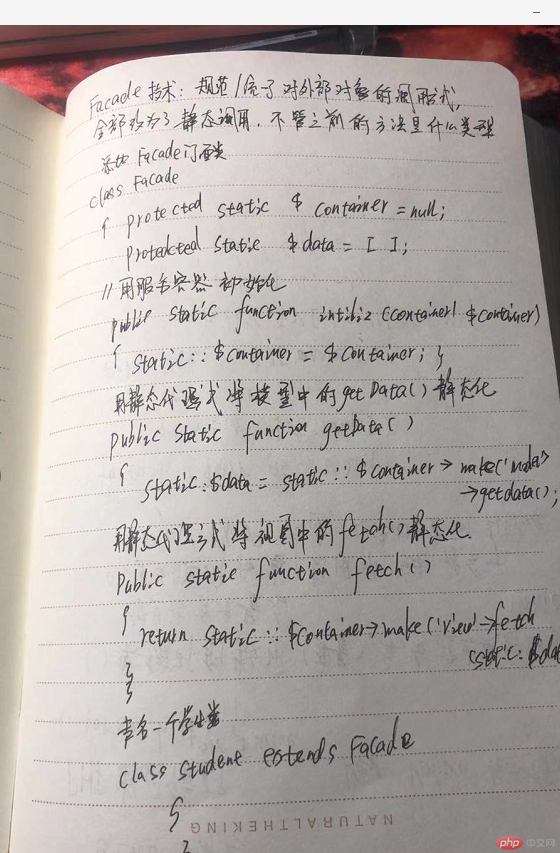 Facade 技术: 规范/统了对外部对象的调用式,
全部改为了静态调用. 不管之前的方法是什么类型
Facade 门面类
class Facade
{ protected static $ container = null;
protedcted static $ data = [ ];
// 用服务容器初始化
public static function intiliz (Container $container)
{ static:: $container = $container; }
用静态代理式将模型中的getData() 静态化
public static function getData ( )
{ static: $data = static :: $container → make('model')
→getdata();
用静态代理方式将视图中的fetch() 静态化.
Public static function fetch ( )
{
return static :: $container→make('view')→fetch
(static: $dat
}
}
一个学生类
class student extends Facade
{
NATURALTHEKING
php 中文网